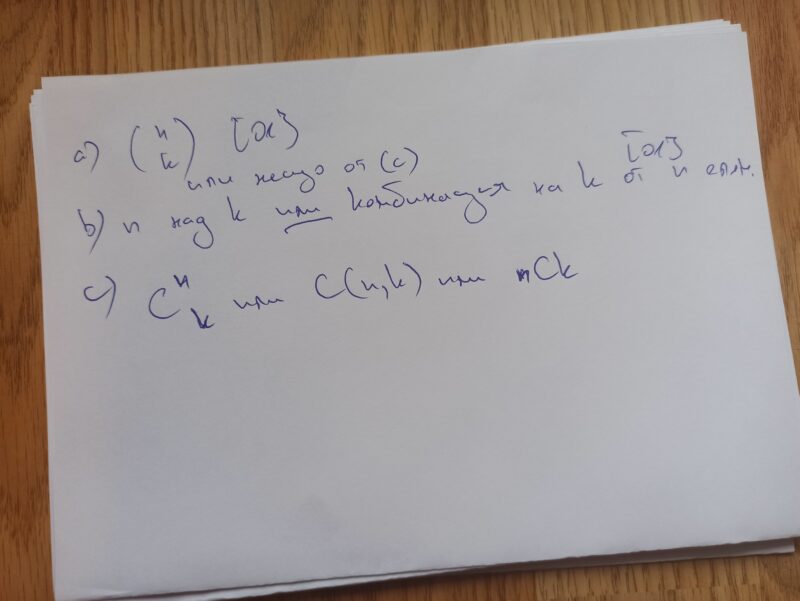 a) (n k)
или нещо от (c)
b) n над k или комбинация на k от n елем.
c) C^n_k или C(n,k) или nCk